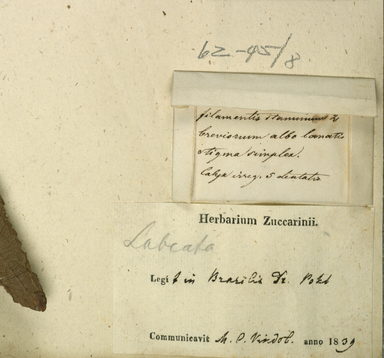 62-45/8
filamentis staminum 2
breviorum albo lanatis
stigma simplex.
Calyx irreg. 5 dentatis
Herbarium Zuccarinii.
Labiata
Legit in Brasilia Dr. Pohl
Communicavit M. P. Vindob. anno 1839